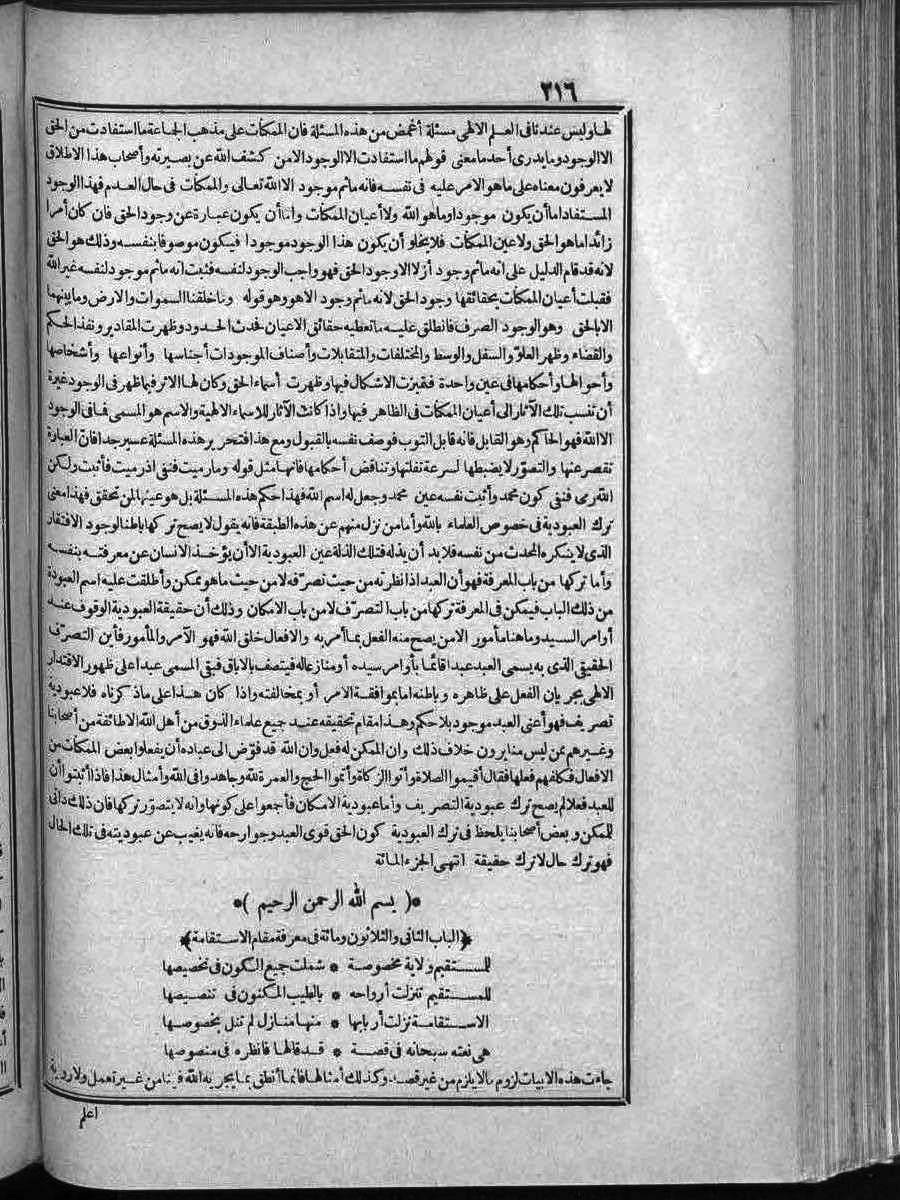 ٢١٦
لها وليس عندنا فى العلم الالهى مسئلة أغمض من هذه المسئلة فان الممكنات على مذهب الجماعة ما استفادت من الحق
الا الوجود وما يدرى أحد ما معنى قولهم ما استفادت الا الوجود الا من كشف الله عن بصيرته وأصحاب هذا الاطلاق
لا يعرفون معناه على ما هو الامر عليه فى نفسه فانه ما ثم موجود الا الله تعالى والممكنات فى حال العدم فهذا الوجود
المستفاد اما أن يكون موجودا وما هو الله ولا أعيان الممكنات واما أن يكون عبارة عن وجود الحق فان كان أمرا
زائدا ما هو الحق ولا عين الممكنات فلا يخلو أن يكون هذا الوجود موجودا فيكون موصوفا بنفسه وذلك هو الحق
لانه قد قام الدليل على انه ما ثم وجود أزلا الا وجود الحق فهو واجب الوجود لنفسه فثبت انه ما ثم موجود لنفسه غير الله
فقبلت أعيان الممكنات بحقائقها وجود الحق لانه ما ثم وجود الا هو وهو قوله وما خلقنا السموات والارض وما بينهما
الا بالحق وهو الوجود الصرف فانطلق عليه ما تعطيه حقائق الاعيان فحدث الحدود وظهرت المقادير ونفذ الحكم
والقضاء وظهر العلو والسفل والوسط والمختلفات والمتقابلات وأصناف الموجودات أجناسها وأنواعها وأشخاصها
وأحوالها وأحكامها فى عين واحدة فتميزت الاشكال فيها وظهرت أسماء الحق وكان لها الاثر فيما ظهر فى الوجود غيرة
أن تنسب تلك الآثار الى أعيان الممكنات فى الظاهر فيها واذا كانت الآثار للاسماء الالهية والاسم هو المسمى فما فى الوجود
الا الله فهو الحاكم وهو القابل فانه قابل التوب فوصف نفسه بالقبول ومع هذا فتحرير هذه المسئلة عسير جدا فان العبارة
تقصر عنها والتصوّر لا يضبطها لسرعة تفلتها وتناقض أحكامها فانها مثل قوله وما رميت فنفى اذ رميت فأثبت ولكن
الله رمى فنفى كون محمد وأثبت نفسه عين محمد وجعل له اسم الله فهذا حكم هذه المسئلة بل هو عينها لمن تحقق فهذا معنى
ترك العبودية فى خصوص العلماء بالله وأما من نزل منهم عن هذه الطبقة فانه يقول لا يصح تركها باطنا لوجود الافتقار
الذى لا ينكره المحدث من نفسه فلا بد أن يذله فتلك الذلة عين العبودية الا أن يؤخذ الانسان عن معرفته بنفسه
وأما تركها من باب المعرفة فهو أن العبد اذا نظرته من حيث تصرّفه لا من حيث ما هو ممكن وأطلقت عليه اسم العبودة
من ذلك الباب فيمكن فى المعرفة تركها من باب التصرّف لا من باب الامكان وذلك أن حقيقة العبودية الوقوف عند
أوامر السيد وما هنا مأمور الا من يصح منه الفعل بما أمر به والافعال خلق الله فهو الآمر والمأمور فأين التصرّف
الحقيقى الذى به يسمى العبد عبدا قائما بأوامر سيده أو منازعا له فيتصف بالاباق فبقى المسمى عبدا على ظهور الاقتدار
الالهى بجريان الفعل على ظاهره وباطنه اما بموافقة الامر أو بمخالفته واذا كان هذا على ما ذكرناه فلا عبودية
تصريف فهو أعنى العبد موجود بلا حكم وهذا مقام تحقيقه عند جميع علماء الذوق من أهل الله الا طائفة من أصحابنا
وغيرهم ممن ليس منا يرون خلاف ذلك وان الممكن له فعل وان الله قد فوّض الى عباده أن يفعلوا بعض الممكنات من
الافعال فكلفهم فعلها فقال أقيموا الصلاة وأتوا الزكاة وأتموا الحج والعمرة لله وجاهدوا فى الله وأمثال هذا فاذا أثبتوا أن
للعبد فعلا لم يصح ترك عبودية التصريف وأما عبودية الامكان فأجمعوا على كونها وانه لا يتصوّر تركها فان ذلك ذاتى
للممكن وبعض أصحابنا يلحظ فى ترك العبودية كون الحق قوى العبد وجوارحه فانه يغيب عن عبوديته فى تلك الحال
فهو ترك حال لا ترك حقيقة انتهى الجزء المائة
*( بسم الله الرحمن الرحيم )*
﴿الباب الثانى والثلاثون ومائة فى معرفة مقام الاستقامة﴾
للمستقيم ولاية مخصوصة * شملت جميع الكون فى تخصيصها
للمستقيم تنزلت أرواحه * بالطيب المكنون فى تنصيصها
الاستقامة نزلت أربابها * منها منازل لم تنل بخصوصها
هى نعته سبحانه فى قصة * قد قالها فانظره فى منصوصها
جاءت هذه الابيات لزوم ما لا يلزم من غير قصد وكذلك أمثالها فانما أنطق بما يجريه الله فينا من غير تعمل ولا روية
اعلم